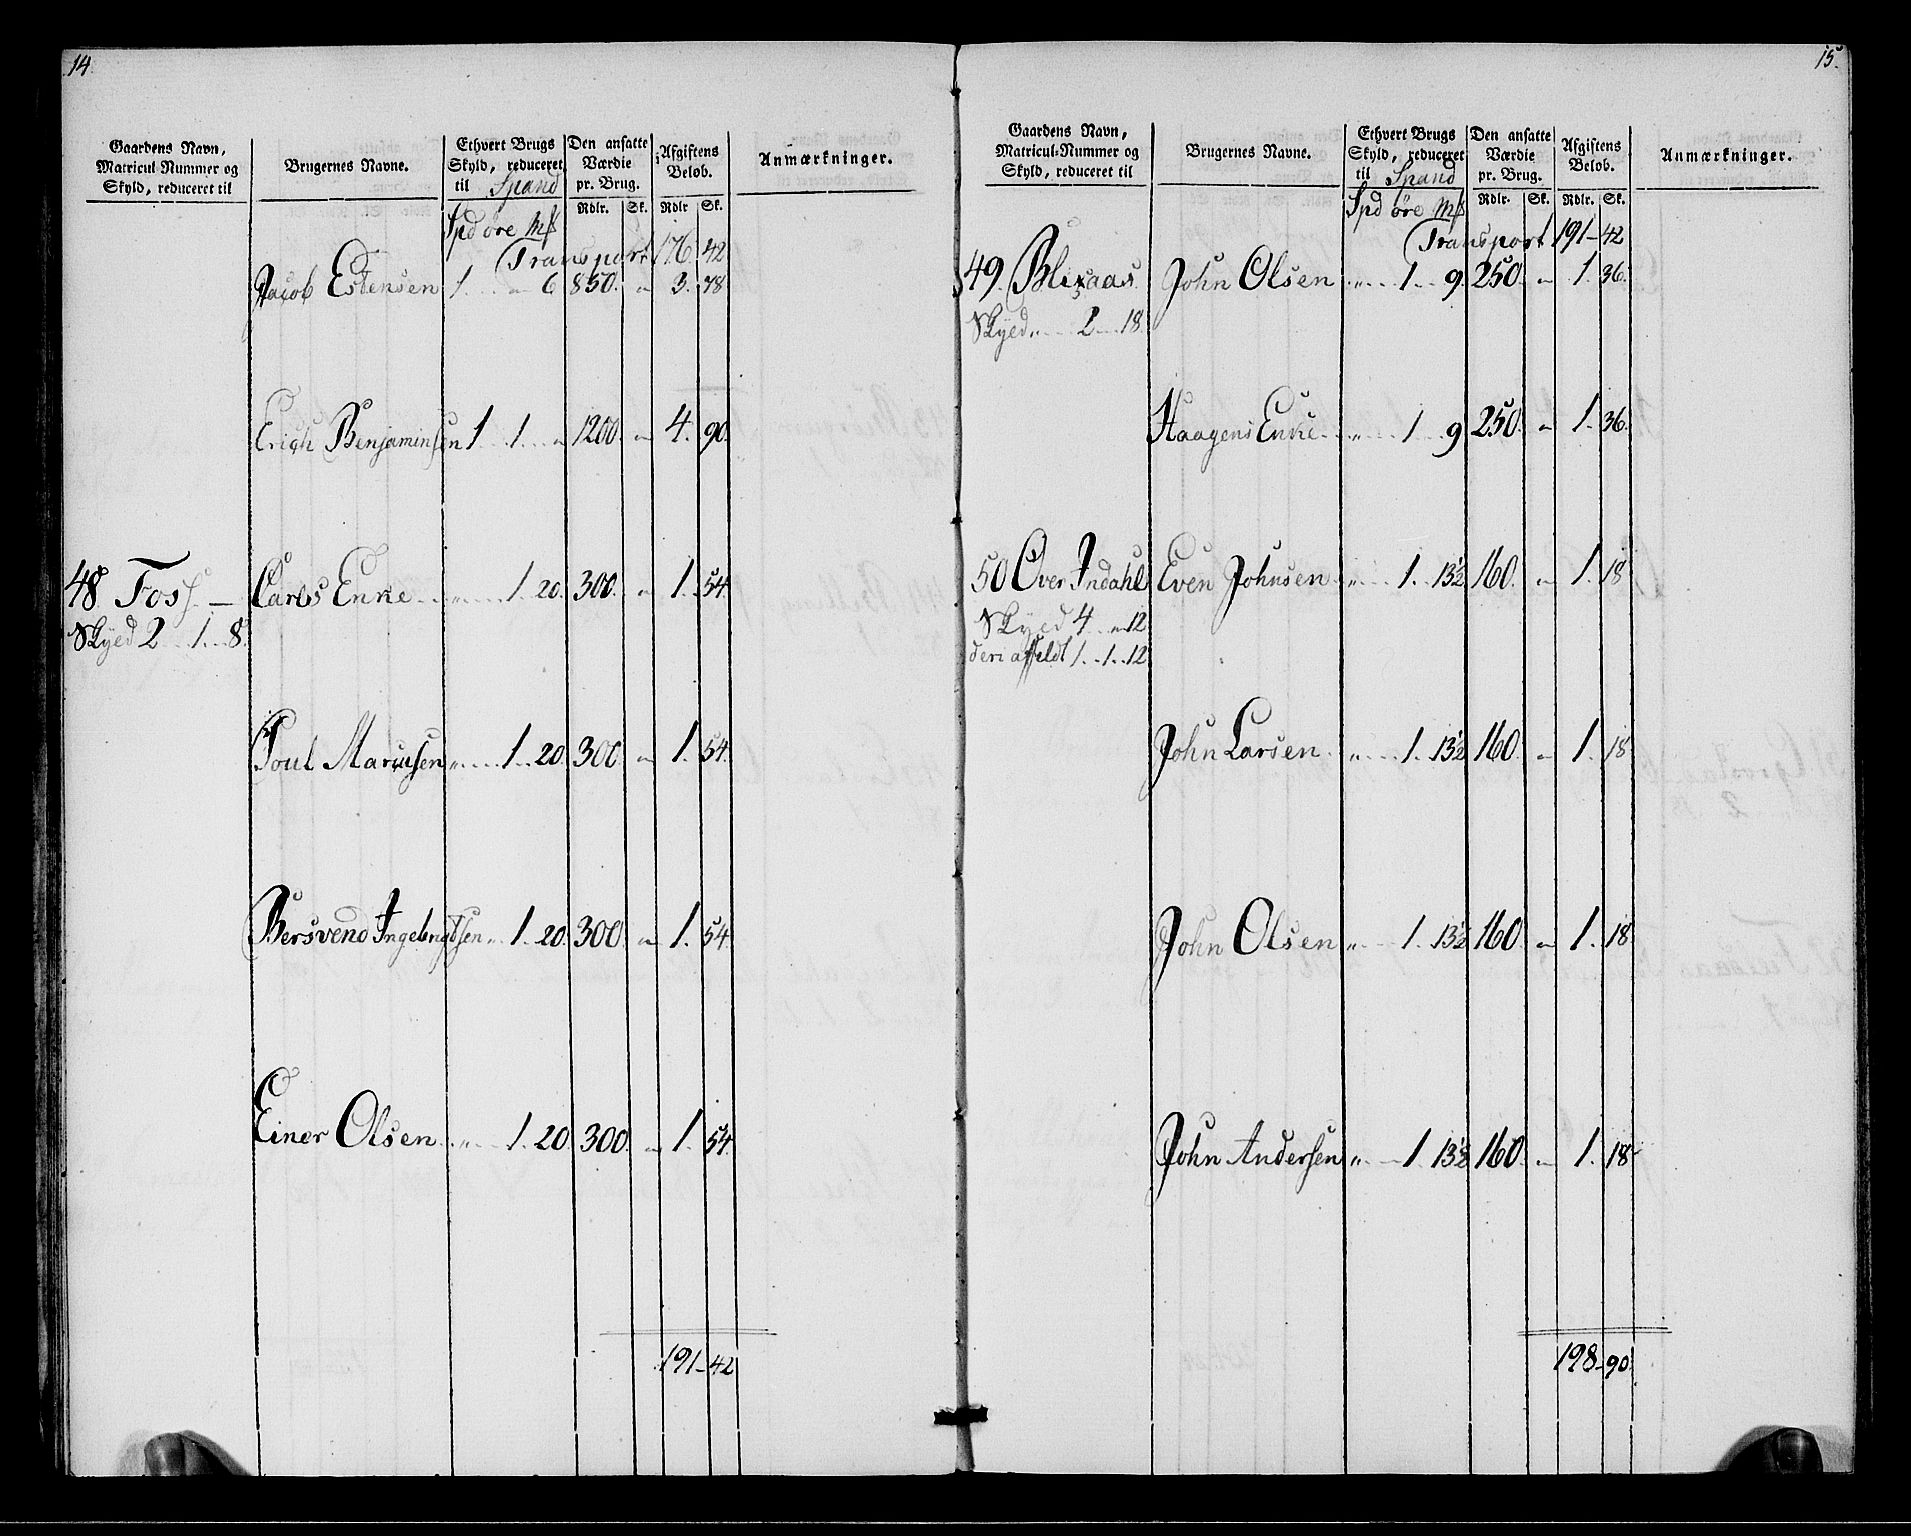 14.
Gaardens Navn, Matricul-Nummer og Skyld, reduceret til
Brugernes Navne.
Ethvert Brugs Skyld, reduceret til Spand
Den ansatte Værdie pr. Brug.
Afgiftens Belob.
Anmærkninger.
Rdlr. Sk. Rdlr Sk.
Spd öre M&
Transport 176 42
Jacob Estensen 1 .. „ 6 850. „ 3. 48
Erich Benjaminsen 1 1 .. „ 1200. „ 4. 90.
48. Foss. — Carls Enke .. „ .. 1. 20. 300. „ 1. 54.
Skyld 2 .. 1 .. 8.
Poul Marcusen „ .. 1 .. 20. 300. „ 1. 54.
Bersvend Ingebrigtsen „ 1. 20. 300. „ 1. 54.
Einer Olsen .. „ .. 1. 20. 300. „ 1. 54.
191 - 42
15.
Gaardens Navn, Matricul-Nummer og Skyld, reduceret til
Brugernes Navne.
Ethvert Brugs Skyld, reduceret til Spand
Den ansatte Værdie pr. Brug.
Afgiftens Belob.
Anmærkninger.
Rdlr. Sk. Rdlr. Sk.
Spd öre M&
Transport 191 - 42
49. John Olsen „ .. 1 .. 9. 250. „ 1. 36.
Skyld „ .. 2 .. 18.
Haagens Enke .. „ .. 1 .. 9 250. „ 1. 36.
50 Over Indahl Even Johnsen „ .. 1 .. 13½ 160. „ 1. 18
Skyld 4 .. „ 12
deri affeldt 1 .. 1 .. 12
John Larsen „ .. 1. 13½ 160. „ 1. 18
John Olsen „ .. 1. 13½ 160. „ 1. 18
John Andersen „ .. 1. 13½ 160. „ 1. 18
198 - 90.